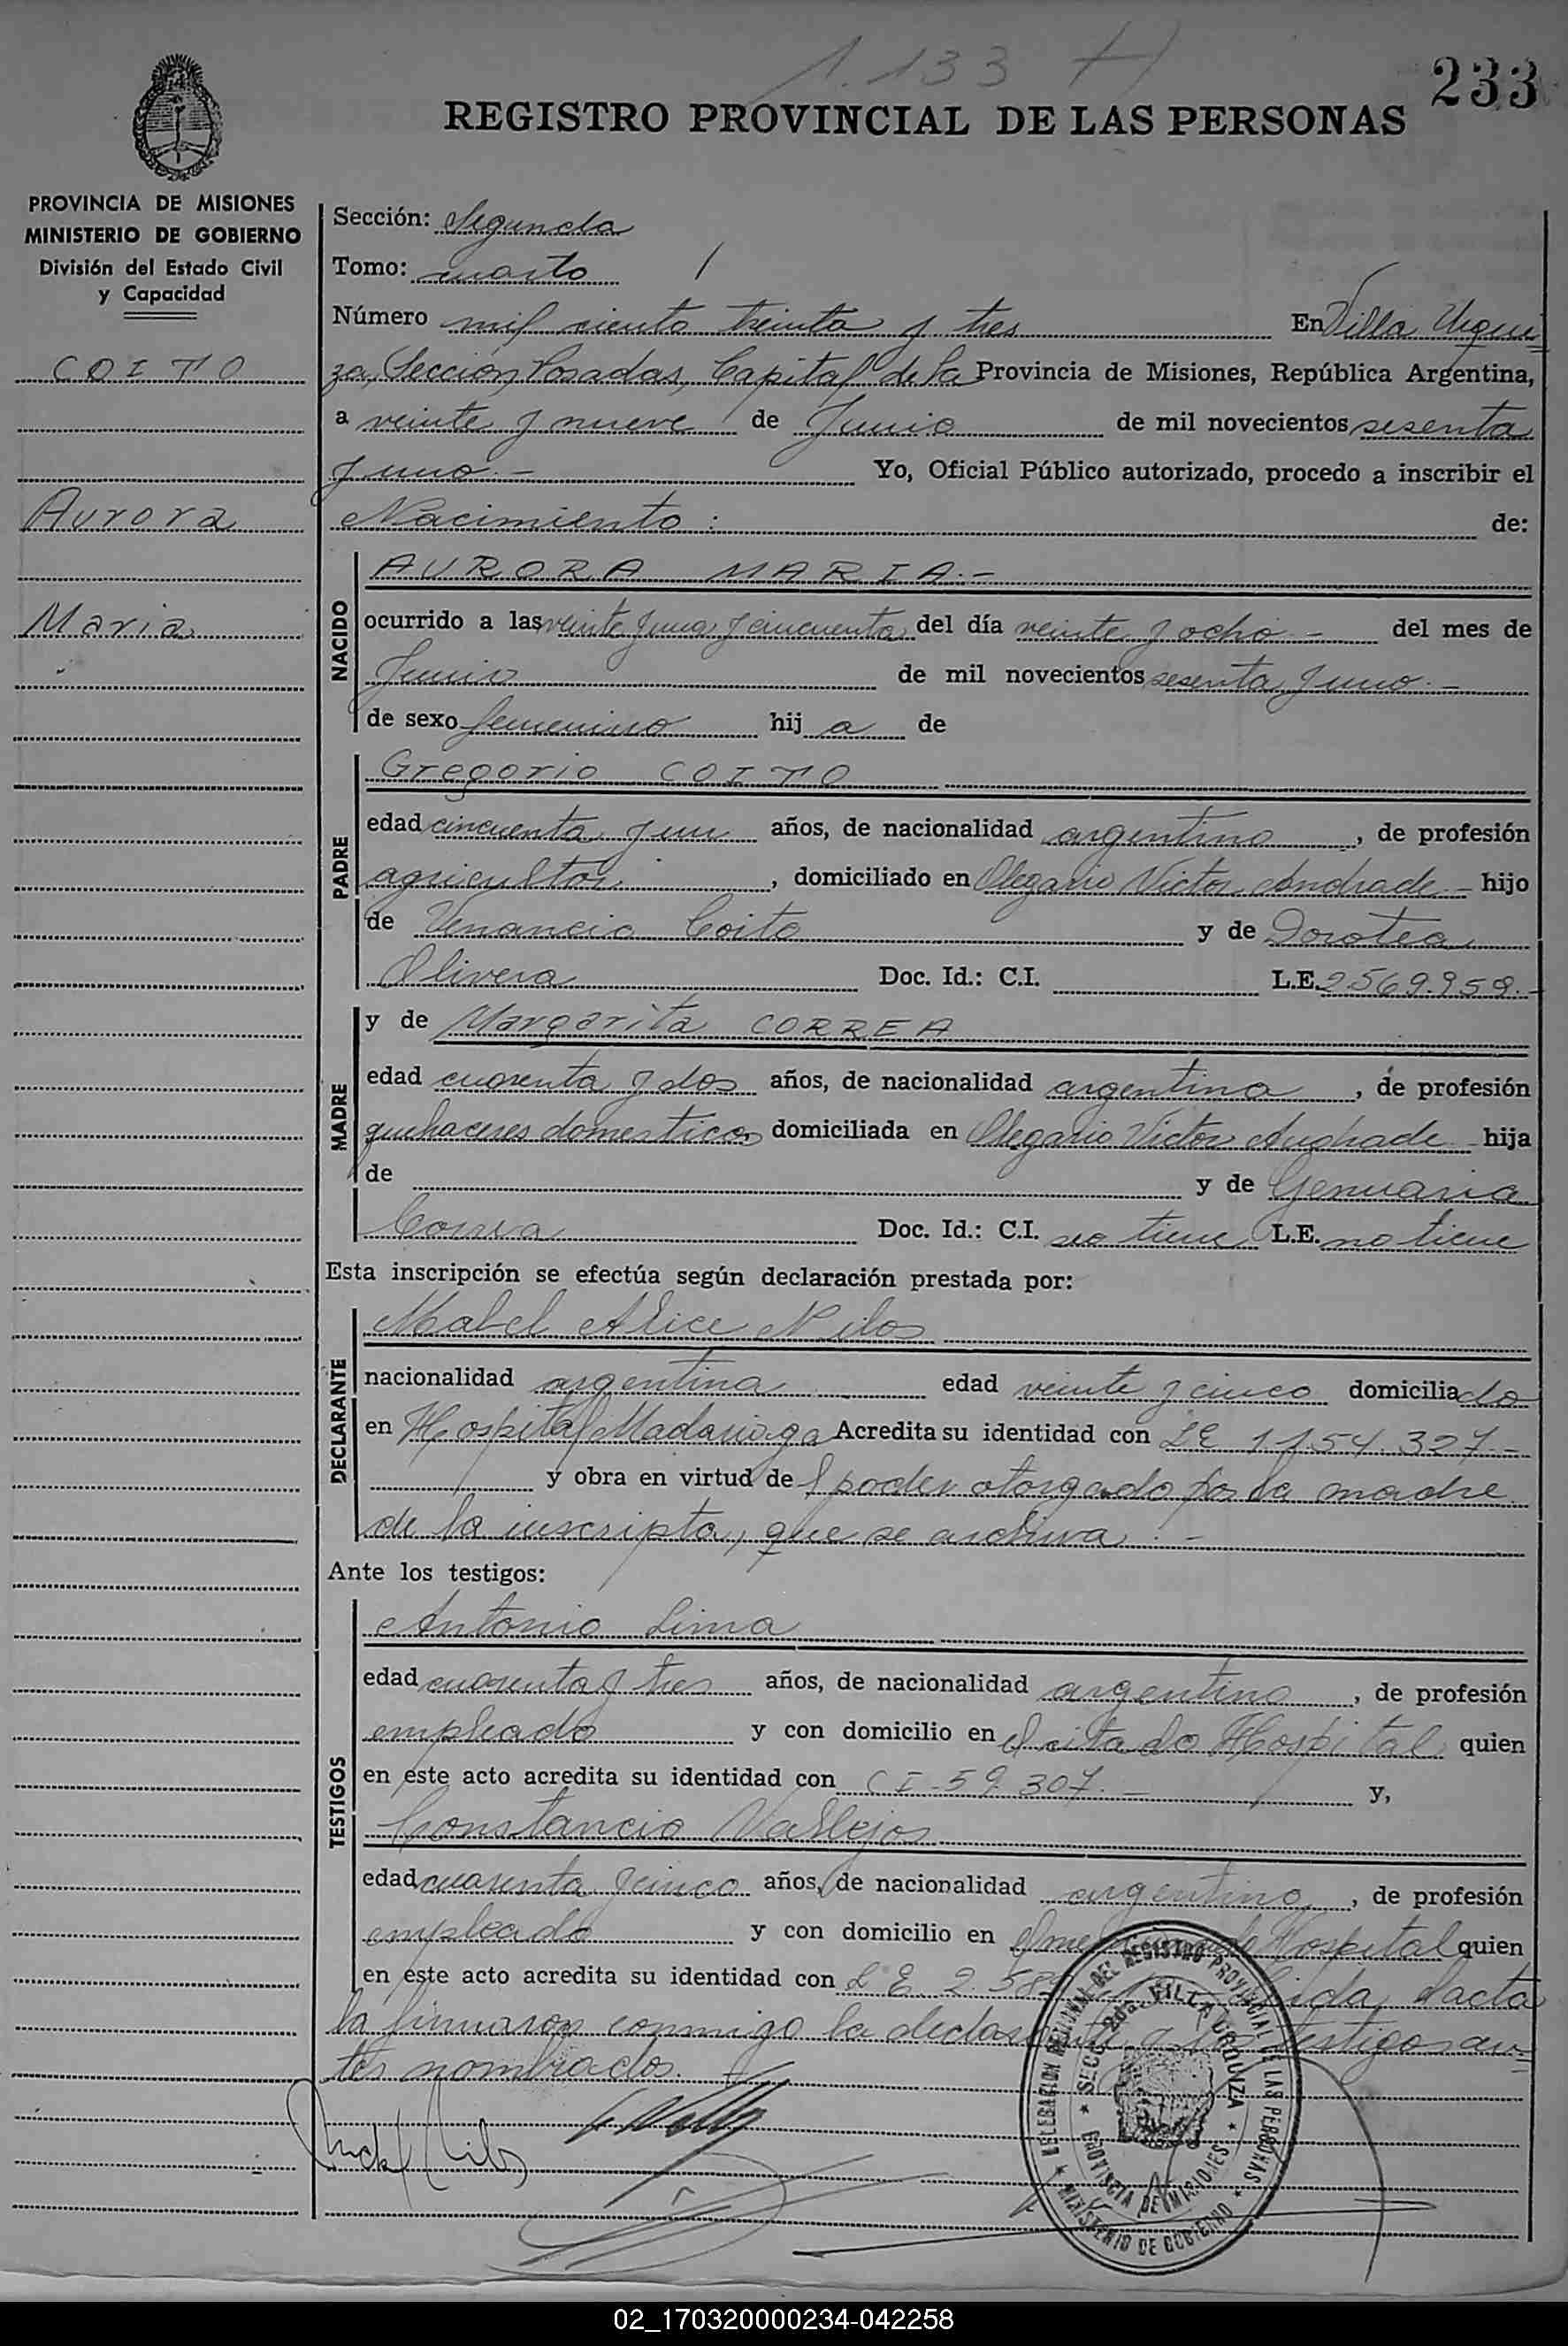 1.133
233
REGISTRO PROVINCIAL DE LAS PERSONAS
PROVINCIA DE MISIONES
MINISTERIO DE GOBIERNO
División del Estado Civil
y Capacidad
COITO
Aurora
Maria
Sección: Segunda
Tomo: cuarto
Número mil ciento treinta y tres En Villa Urqui
za, Sección Posadas, Capital de la Provincia de Misiones, República Argentina,
a veinte y nueve de Junio de mil novecientos sesenta
y uno.- Yo, Oficial Público autorizado, procedo a inscribir el
Nacimiento: de:
NACIDO
AURORA MARIA.-
ocurrido a las veinte y una y cincuenta del día veinte y ocho - del mes de
Junio de mil novecientos sesenta y uno.-
de sexo femenino hij a de
PADRE
Gregorio COITO
edad cincuenta y un años, de nacionalidad argentino, de profesión
agricultor, domiciliado en Olegario Victor Andrade - hijo
de Venancio Coito y de Dorotea
Olivera Doc. Id.: C.I. L.E. 2569.959.-
MADRE
y de Margarita CORREA
edad cuarenta y dos años, de nacionalidad argentina, de profesión
quehaceres domesticos domiciliada en Olegario Victor Andrade - hija
de y de Genuaria
Correa Doc. Id.: C.I. no tiene L.E. no tiene
Esta inscripción se efectúa según declaración prestada por:
DECLARANTE
Mabel Alice Nilos
nacionalidad argentina edad veinte y cinco domiciliado
en Hospital Madariaga Acredita su identidad con LE 1154.327.-
y obra en virtud de l poder otorgado por la madre
de la inscripta, que se archiva.-
Ante los testigos:
TESTIGOS
Antonio Lima
edad cuarenta y tres años, de nacionalidad argentino, de profesión
empleado y con domicilio en el citado Hospital quien
en este acto acredita su identidad con CI-59.307.- y,
Constancio Vallejos
edad cuarenta y cinco años, de nacionalidad argentino, de profesión
empleado y con domicilio en Hospital quien
en este acto acredita su identidad con L E 2.58 Leida el acta
la firmaron conmigo la declarante y los testigos an-
tes nombrados.
DELEGACION REGIONAL DEL REGISTRO PROVINCIAL DE LAS PERSONAS
SECC. 2da. VILLA URQUIZA
PROVINCIA DE MISIONES
MINISTERIO DE GOBIERNO
02_170320000234-042258